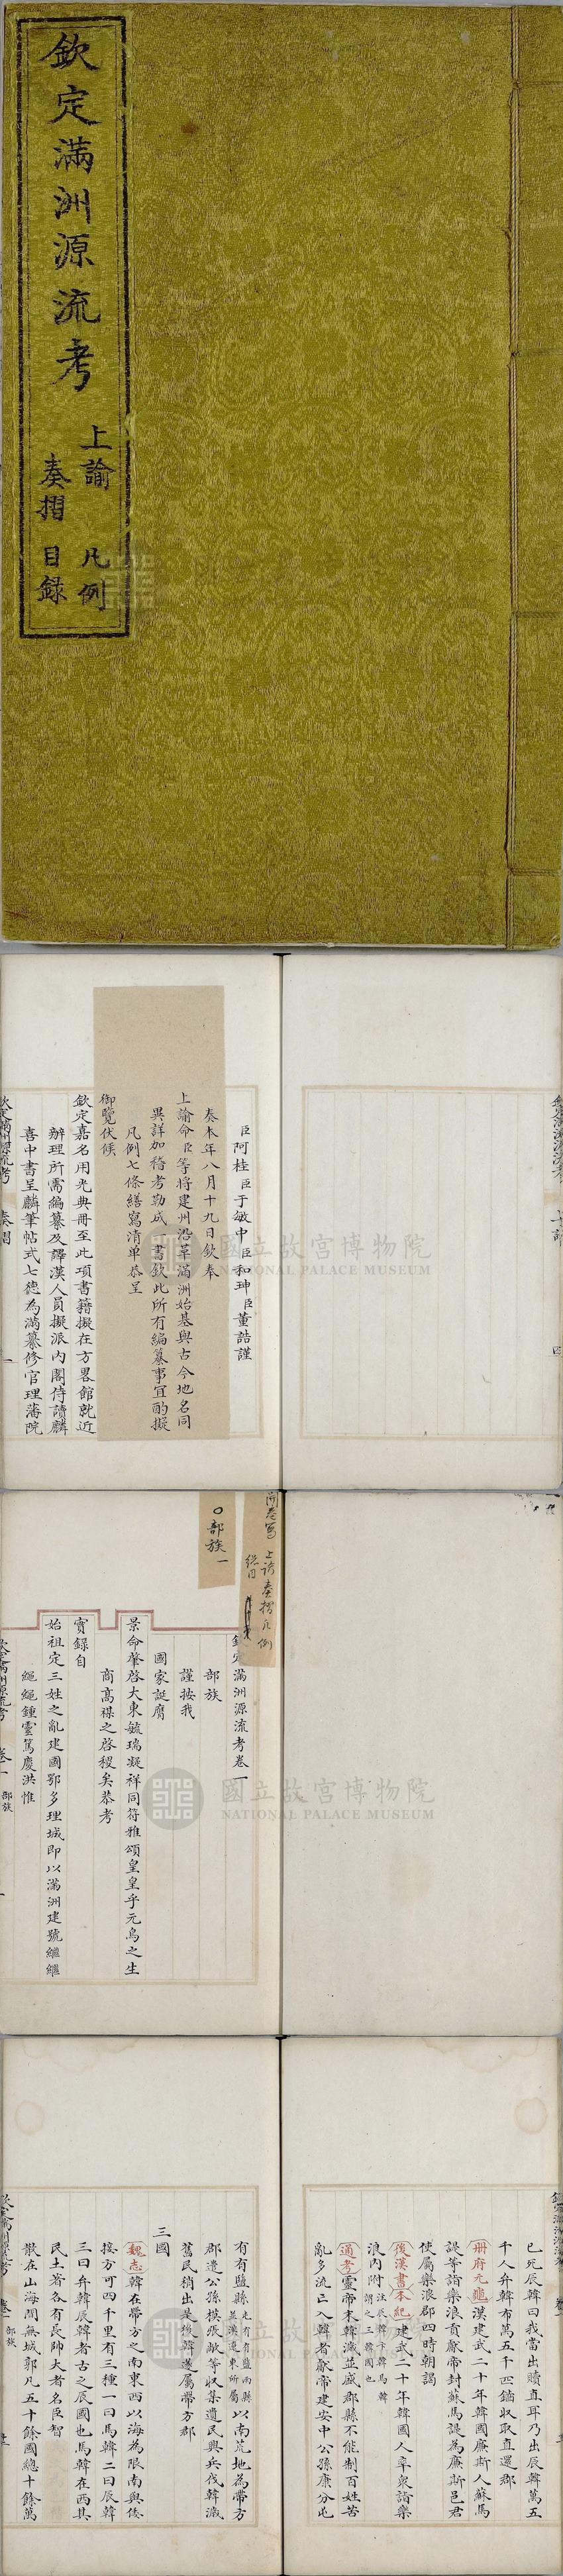 欽定滿洲源流考
上諭 凡例
奏摺 目錄
臣阿桂臣于敏中臣和珅臣董誥謹
奏本年八月十九日欽奉
上諭命臣等將建州沿革滿洲始基與古今地名同
異詳加稽考勒成一書欽此所有編纂事宜酌擬
凡例七條繕寫清单恭呈
御覽伏候
欽定嘉名用光典冊至此項書籍擬在方畧館就近
辦理所需編纂及譯漢人員擬派內閣侍讀麟
喜中書呈麟筆帖式七德為滿纂修官理藩院
欽定滿洲源流考 奏摺 一
國立故宮博物院
NATIONAL PALACE MUSEUM
部族一
上諭奏摺凡例
欽定滿洲源流考卷一
部族
謹按我
國家誕膺
景命肇啓大東毓瑞凝祥同符雅頌皇皇乎元鳥之生
商高禖之啓稷矣恭考
實錄自
始祖定三姓之亂建國鄂多理城即以滿洲建號繼繼
繩繩鍾靈篤慶洪惟
欽定滿洲源流考 卷一 部族 一
國立故宮博物院
NATIONAL PALACE MUSEUM
已死辰韓曰我當出贖直耳乃出辰韓萬五
千人弁韓布萬五千匹鏑收取直還郡
冊府元龜漢建武二十年韓國廉斯人蘇馬
諟等詣樂浪貢獻帝封蘇馬諟為廉斯邑君
使屬樂浪郡四時朝謁
後漢書本紀建武二十年韓國人率衆詣樂
浪內附注辰韓卞韓馬韓謂之三韓國也
通考靈帝末韓濊並盛郡縣不能制百姓苦
亂多流亡入韓者獻帝建安中公孫康分屯
有有鹽縣屯有有鹽兩縣並漢遼東所屬以南荒地為帶方
郡遣公孫模張敞等收集遺民興兵伐韓濊
舊民稍出是後韓遂屬帶方郡
三國
魏志韓在帶方之南東西以海為限南與倭
接方可四千里有三種一曰馬韓二曰辰韓
三曰弁韓辰韓者古之辰國也馬韓在西其
民土著各有長帥大者名臣智
散在山海間無城郭凡五十餘國總十餘萬